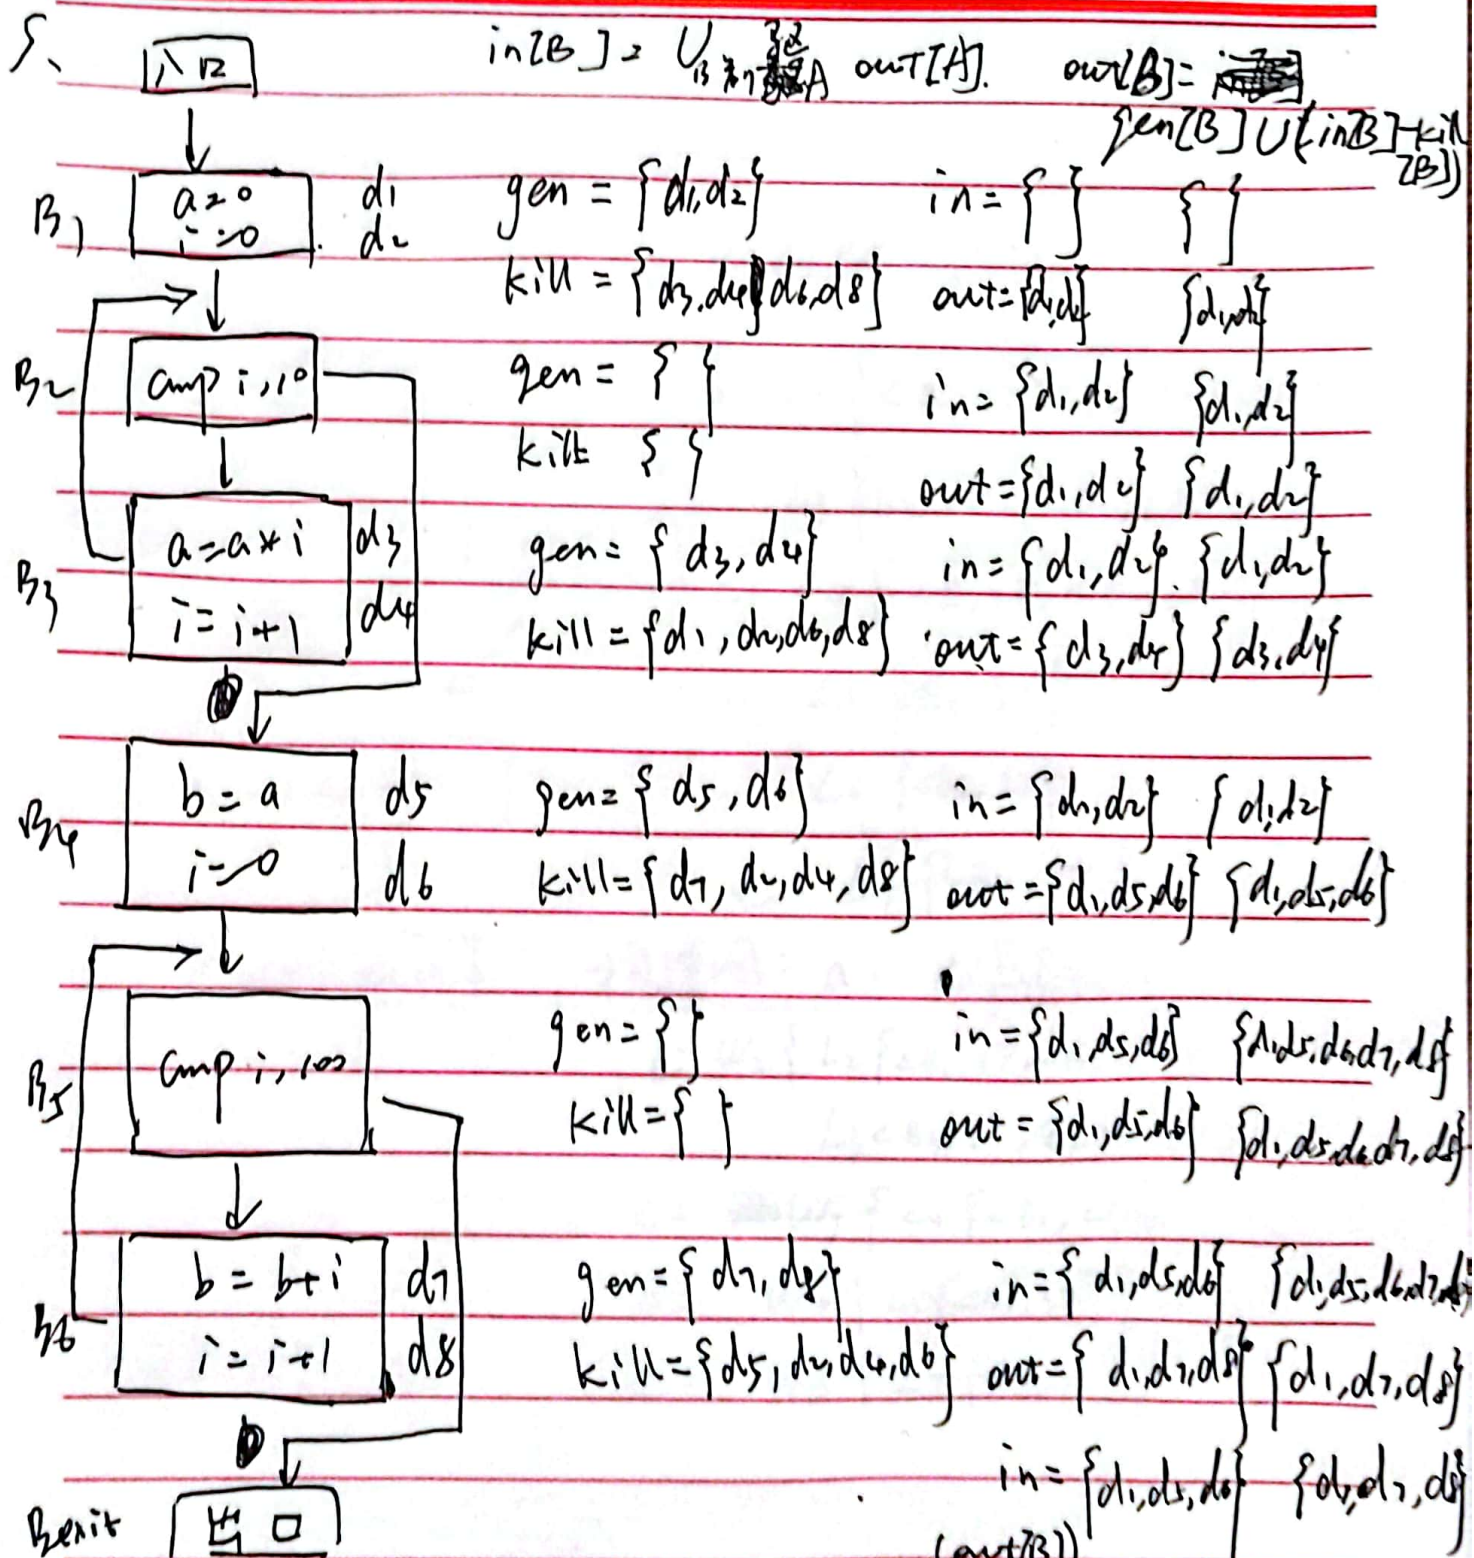 5、
入口
in[B] = ∪ B的前驱A out[A]. out[B]=
gen[B] ∪ (in[B]-kill[B])
B1
a=0 d1
i=0 d2
gen = {d1,d2}
in = { } { }
kill = {d3,d4,d6,d8}
out={d1,d2} {d1,d2}
B2
cmp i,10
gen = { }
in = {d1,d2} {d1,d2}
kill= { }
out={d1,d2} {d1,d2}
B3
a=a*i d3
i=i+1 d4
gen= {d3,d4}
in={d1,d2}. {d1,d2}
kill={d1,d2,d6,d8}
out={d3,d4} {d3,d4}
B4
b=a d5
i=0 d6
gen={d5,d6}
in={d1,d2} {d1,d2}
kill={d7,d2,d4,d8}
out={d1,d5,d6} {d1,d5,d6}
B5
cmp i,100
gen={ }
in={d1,d5,d6} {d1,d5,d6,d7,d8}
kill={ }
out={d1,d5,d6} {d1,d5,d6,d7,d8}
B6
b=b+i d7
i=i+1 d8
gen={d7,d8}
in={d1,d5,d6} {d1,d5,d6,d7,d8}
kill={d5,d2,d4,d6}
out={d1,d7,d8} {d1,d7,d8}
Bexit
出口
in={d1,d5,d6} {d1,d7,d8}
(out[B])